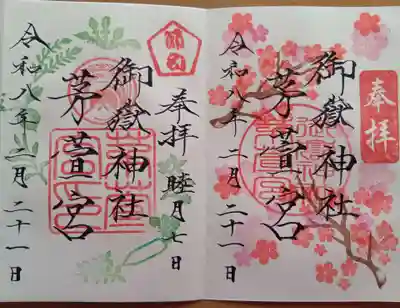 奉拝
御嶽神社
茅萱宮
令和八年二月二十一日
師団
奉拝 睦月七日
御嶽神社
茅萱宮
令和八年二月二十一日